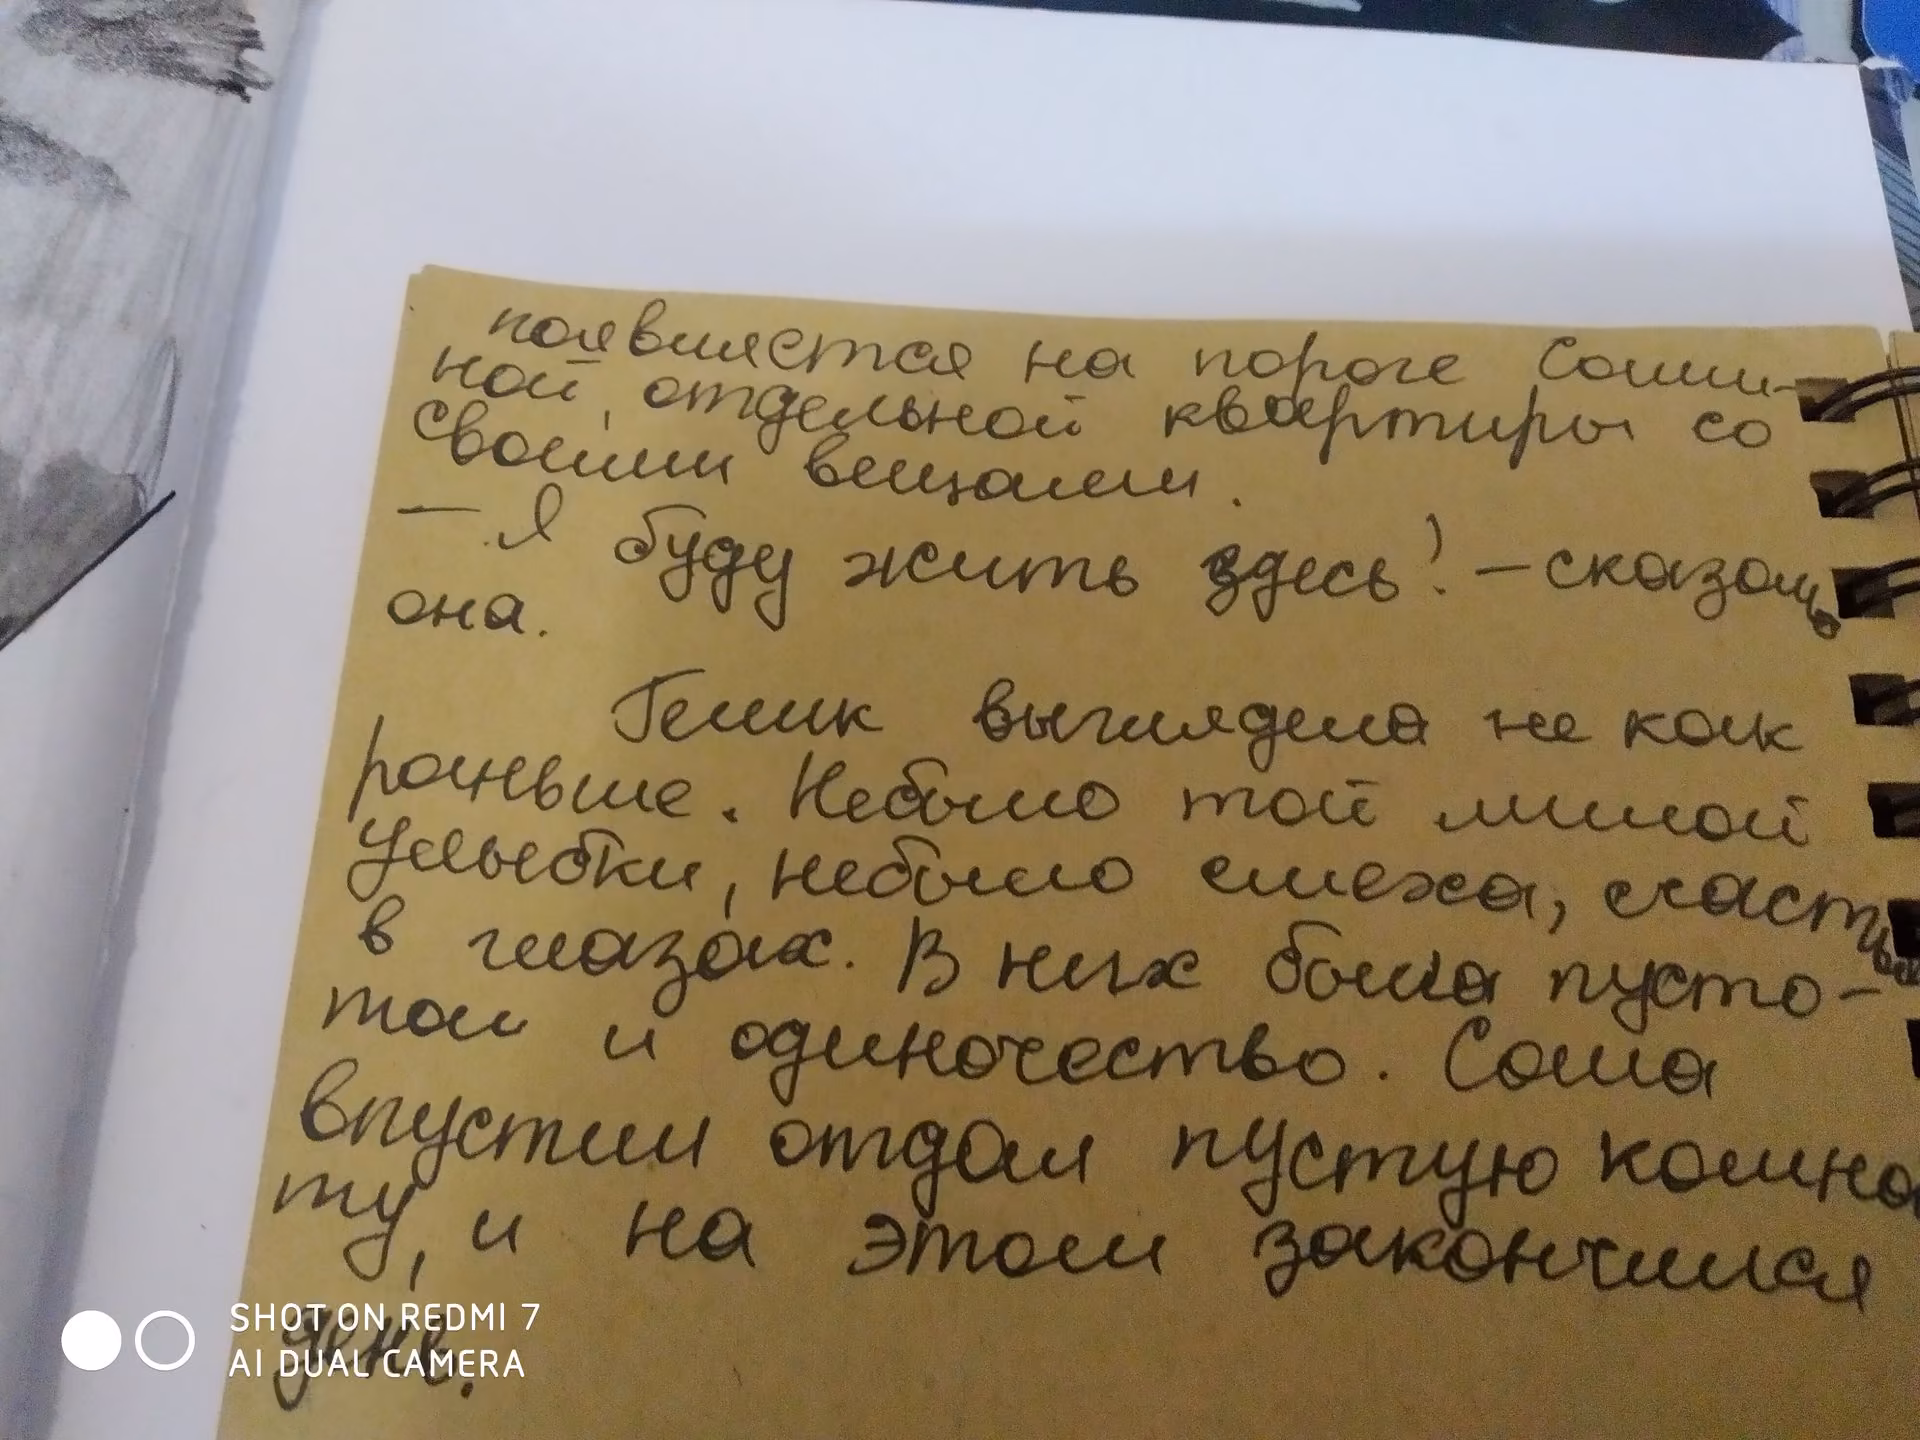 появляется на пороге Саши-
ной, отдельной квартиры со
своими вещами.
— Я буду жить здесь! — сказала
она.
Гелик выглядела не как
раньше. Небыло той милой
улыбки, небыло смеха, счастья
в глазах. В них была пусто-
та и одиночество. Саша
впустил отдал пустую комна
ту, и на этом закончился
день.
SHOT ON REDMI 7
AI DUAL CAMERA